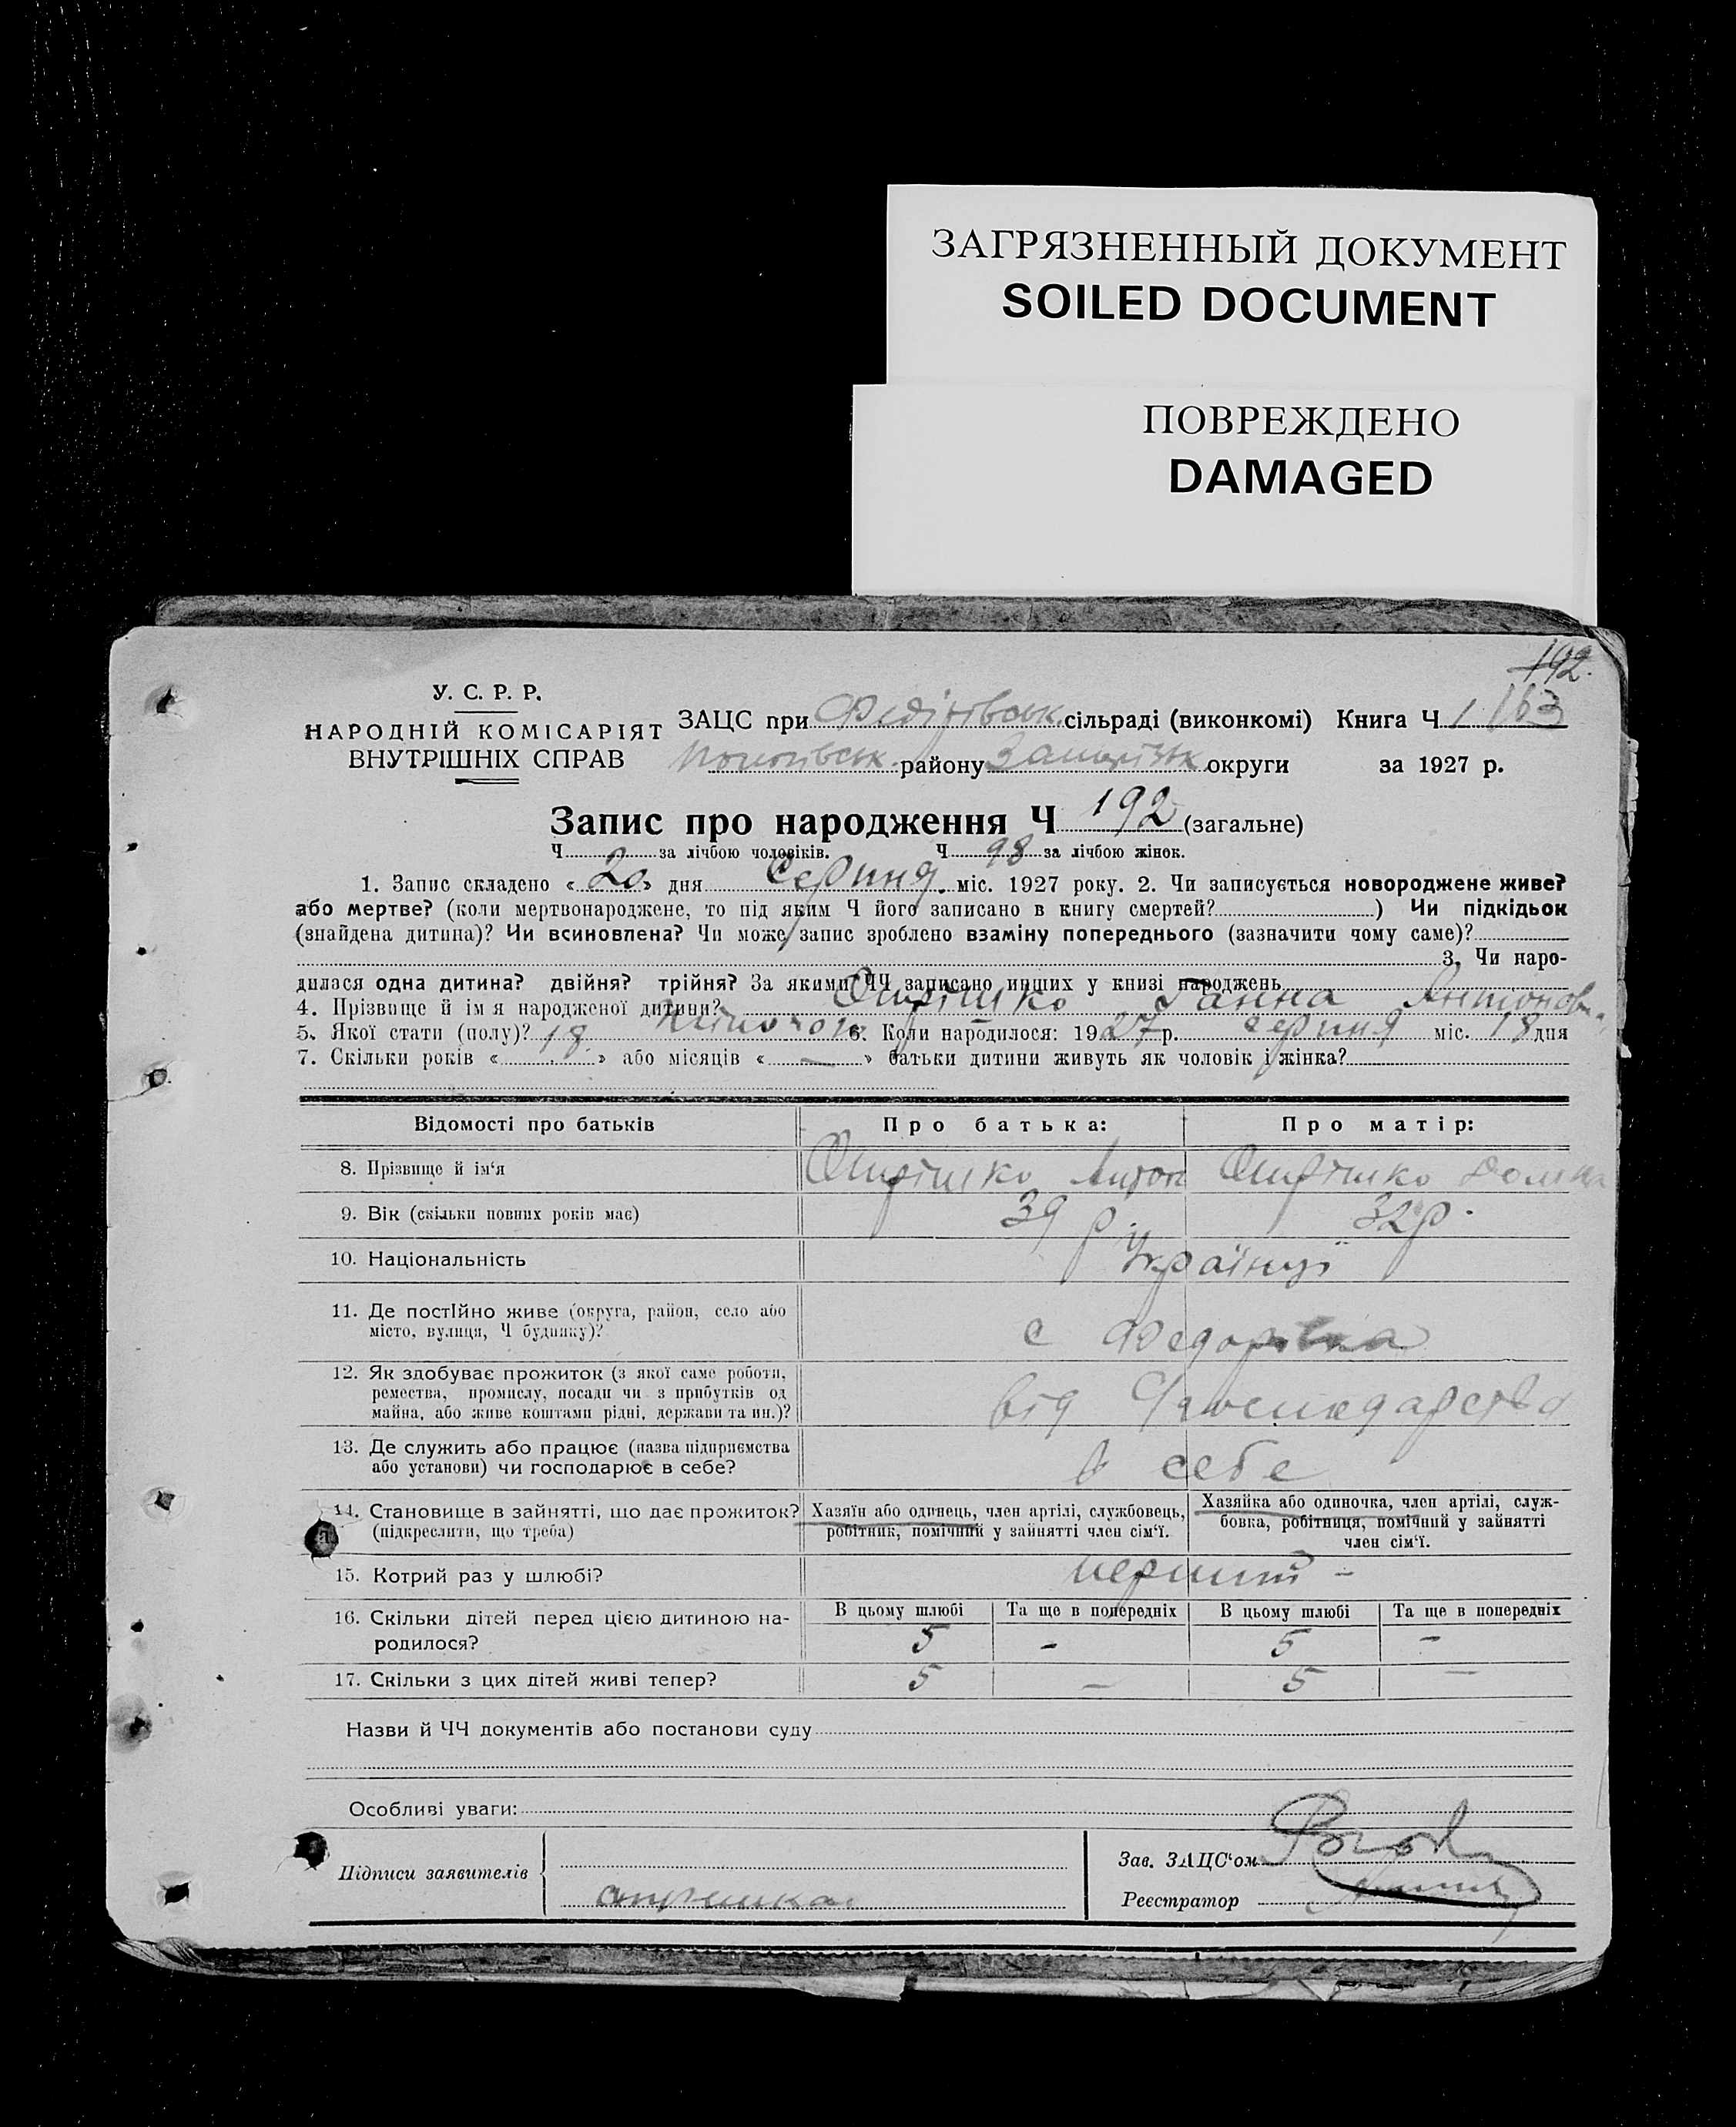 ЗАГРЯЗНЕННЫЙ ДОКУМЕНТ
SOILED DOCUMENT
ПОВРЕЖДЕНО
DAMAGED
192.
У. С. Р. Р.
НАРОДНІЙ КОМІСАРІЯТ
ВНУТРІШНІХ СПРАВ
ЗАЦС при сільраді (виконкомі) Книга Ч 1 163
району округи за 1927 р.
Запис про народження Ч 192 (загальне)
Ч за лічбою чоловіків. Ч 98 за лічбою жінок.
1. Запис складено « 20 » дня Серпня. міс. 1927 року. 2. Чи записується новороджене живе?
або мертве? (коли мертвонароджене, то під яким Ч його записано в книгу смертей? ) Чи підкідьок
(знайдена дитина)? Чи всиновлена? Чи може запис зроблено взаміну попереднього (зазначити чому саме)?
3. Чи наро-
дилася одна дитина? двійня? трійня? За якими ЧЧ записано инших у книзі народжень
4. Прізвище й ім я народженої дитини? Опрішко Ганна Антонов
5. Якої стати (полу)? жіночої 6. Коли народилося: 1927 р. серпня міс. 18 дня
7. Скільки років « 18 » або місяців « — » батьки дитини живуть як чоловік і жінка?
Відомості про батьків Про батька: Про матір:
8. Прізвище й ім'я Опрішко Антон Опрішко
9. Вік (скільки повних років має) 39 р. 32 р.
10. Національність Українці
11. Де постійно живе (округа, район, село або
місто, вулиця, Ч будинку)? с Федорівка
12. Як здобуває прожиток (з якої саме роботи,
ремества, промислу, посади чи з прибутків од
майна, або живе коштами рідні, держави та ин.)? від
13. Де служить або працює (назва підприємства
або установи) чи господарює в себе? в себе
14. Становище в зайнятті, що дає прожиток?
(підкреслити, що треба)
Хазяїн або одинець, член артілі, службовець,
робітник, помічний у зайнятті член сім'ї.
Хазяйка або одиночка, член артілі, служ-
бовка, робітниця, помічний у зайнятті
член сім'ї.
15. Котрий раз у шлюбі? перший –
16. Скільки дітей перед цією дитиною на-
родилося?
В цьому шлюбі Та ще в попередніх В цьому шлюбі Та ще в попередніх
5 – 5 –
17. Скільки з цих дітей живі тепер? 5 – 5 –
Назви й ЧЧ документів або постанови суду
Особливі уваги:
Підписи заявителів
Зав. ЗАЦС'ом
Реєстратор